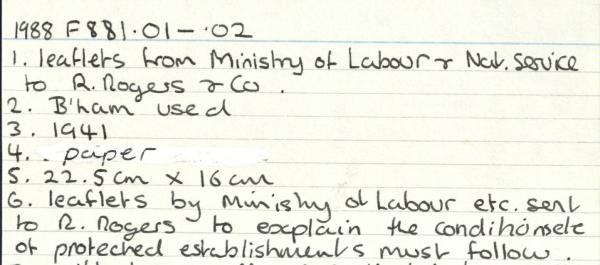 1988 F881.01 - .02
1. leaflets from Ministry of Labour & Nat. Service
to R. Rogers & Co.
2. B'ham used
3. 1941
4. . paper
5. 22.5cm x 16cm
6. leaflets by Ministry of Labour etc. sent
to R. Rogers to explain the conditions etc
of protected establishments must follow.